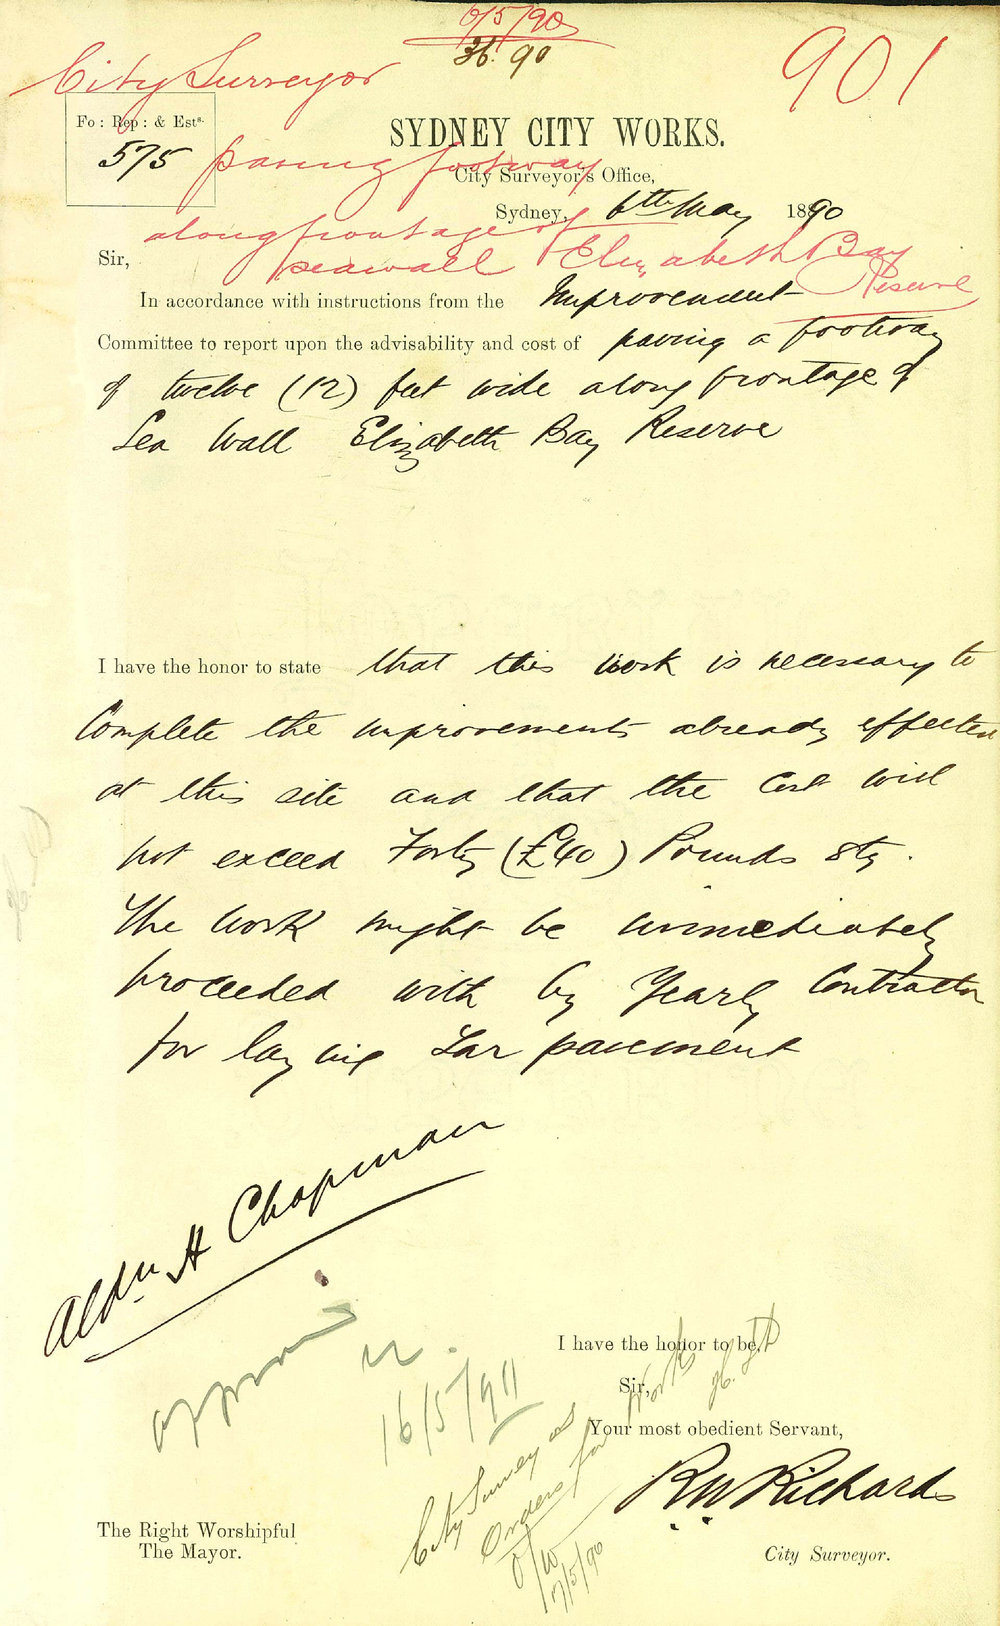 6/5/90
36.90
901
City Surveyor
Fo: Rep: & Ests.
575
SYDNEY CITY WORKS.
paving footway
City Surveyor's Office,
Sydney, 6th May 1890
along frontage of
Sir,
seawall Elizabeth Bay
Reserve
In accordance with instructions from the Improvement
Committee to report upon the advisability and cost of paving a footway
of twelve (12) feet wide along frontage of
Sea Wall Elizabeth Bay Reserve
I have the honor to state that this work is necessary to
Complete the improvements already effected
at this site and that the Cost will
not exceed Forty (£40) Pounds Stg.
The work might be immediately
proceeded with by Yearly Contractor
for laying Tar pavement
Aldn. H Chapman
approved
16/5/90
I have the honor to be,
Sir,
Your most obedient Servant,
City Surveyor
Orders for Work
7/5/90
R W Richards
The Right Worshipful
The Mayor.
City Surveyor.